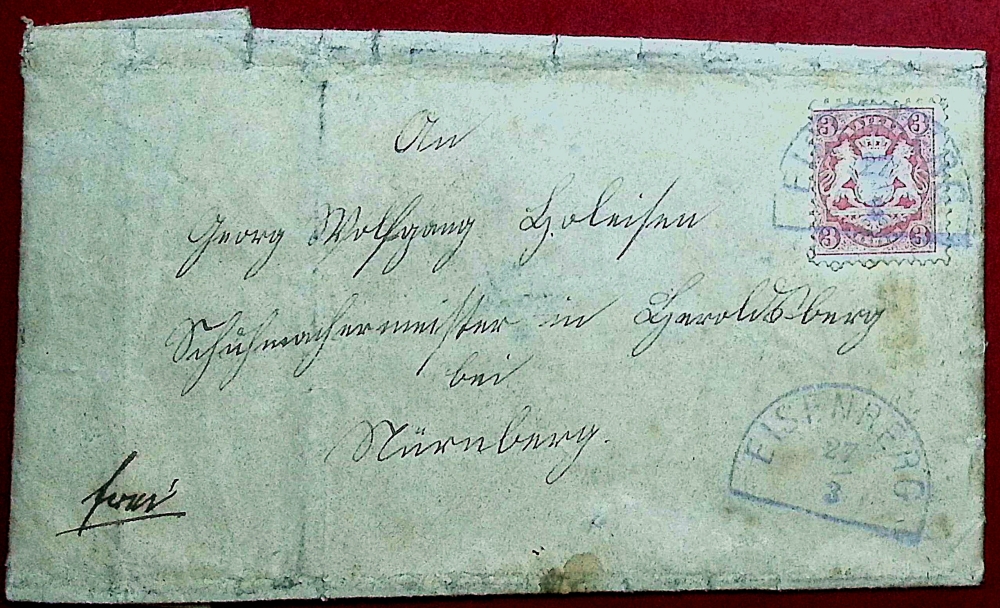 An
Georg Wolfgang Holeisen
Schuhmachermeister in Heroldsberg
bei
Nürnberg.
frei
3 3
3 3
EISENBERG
27
3